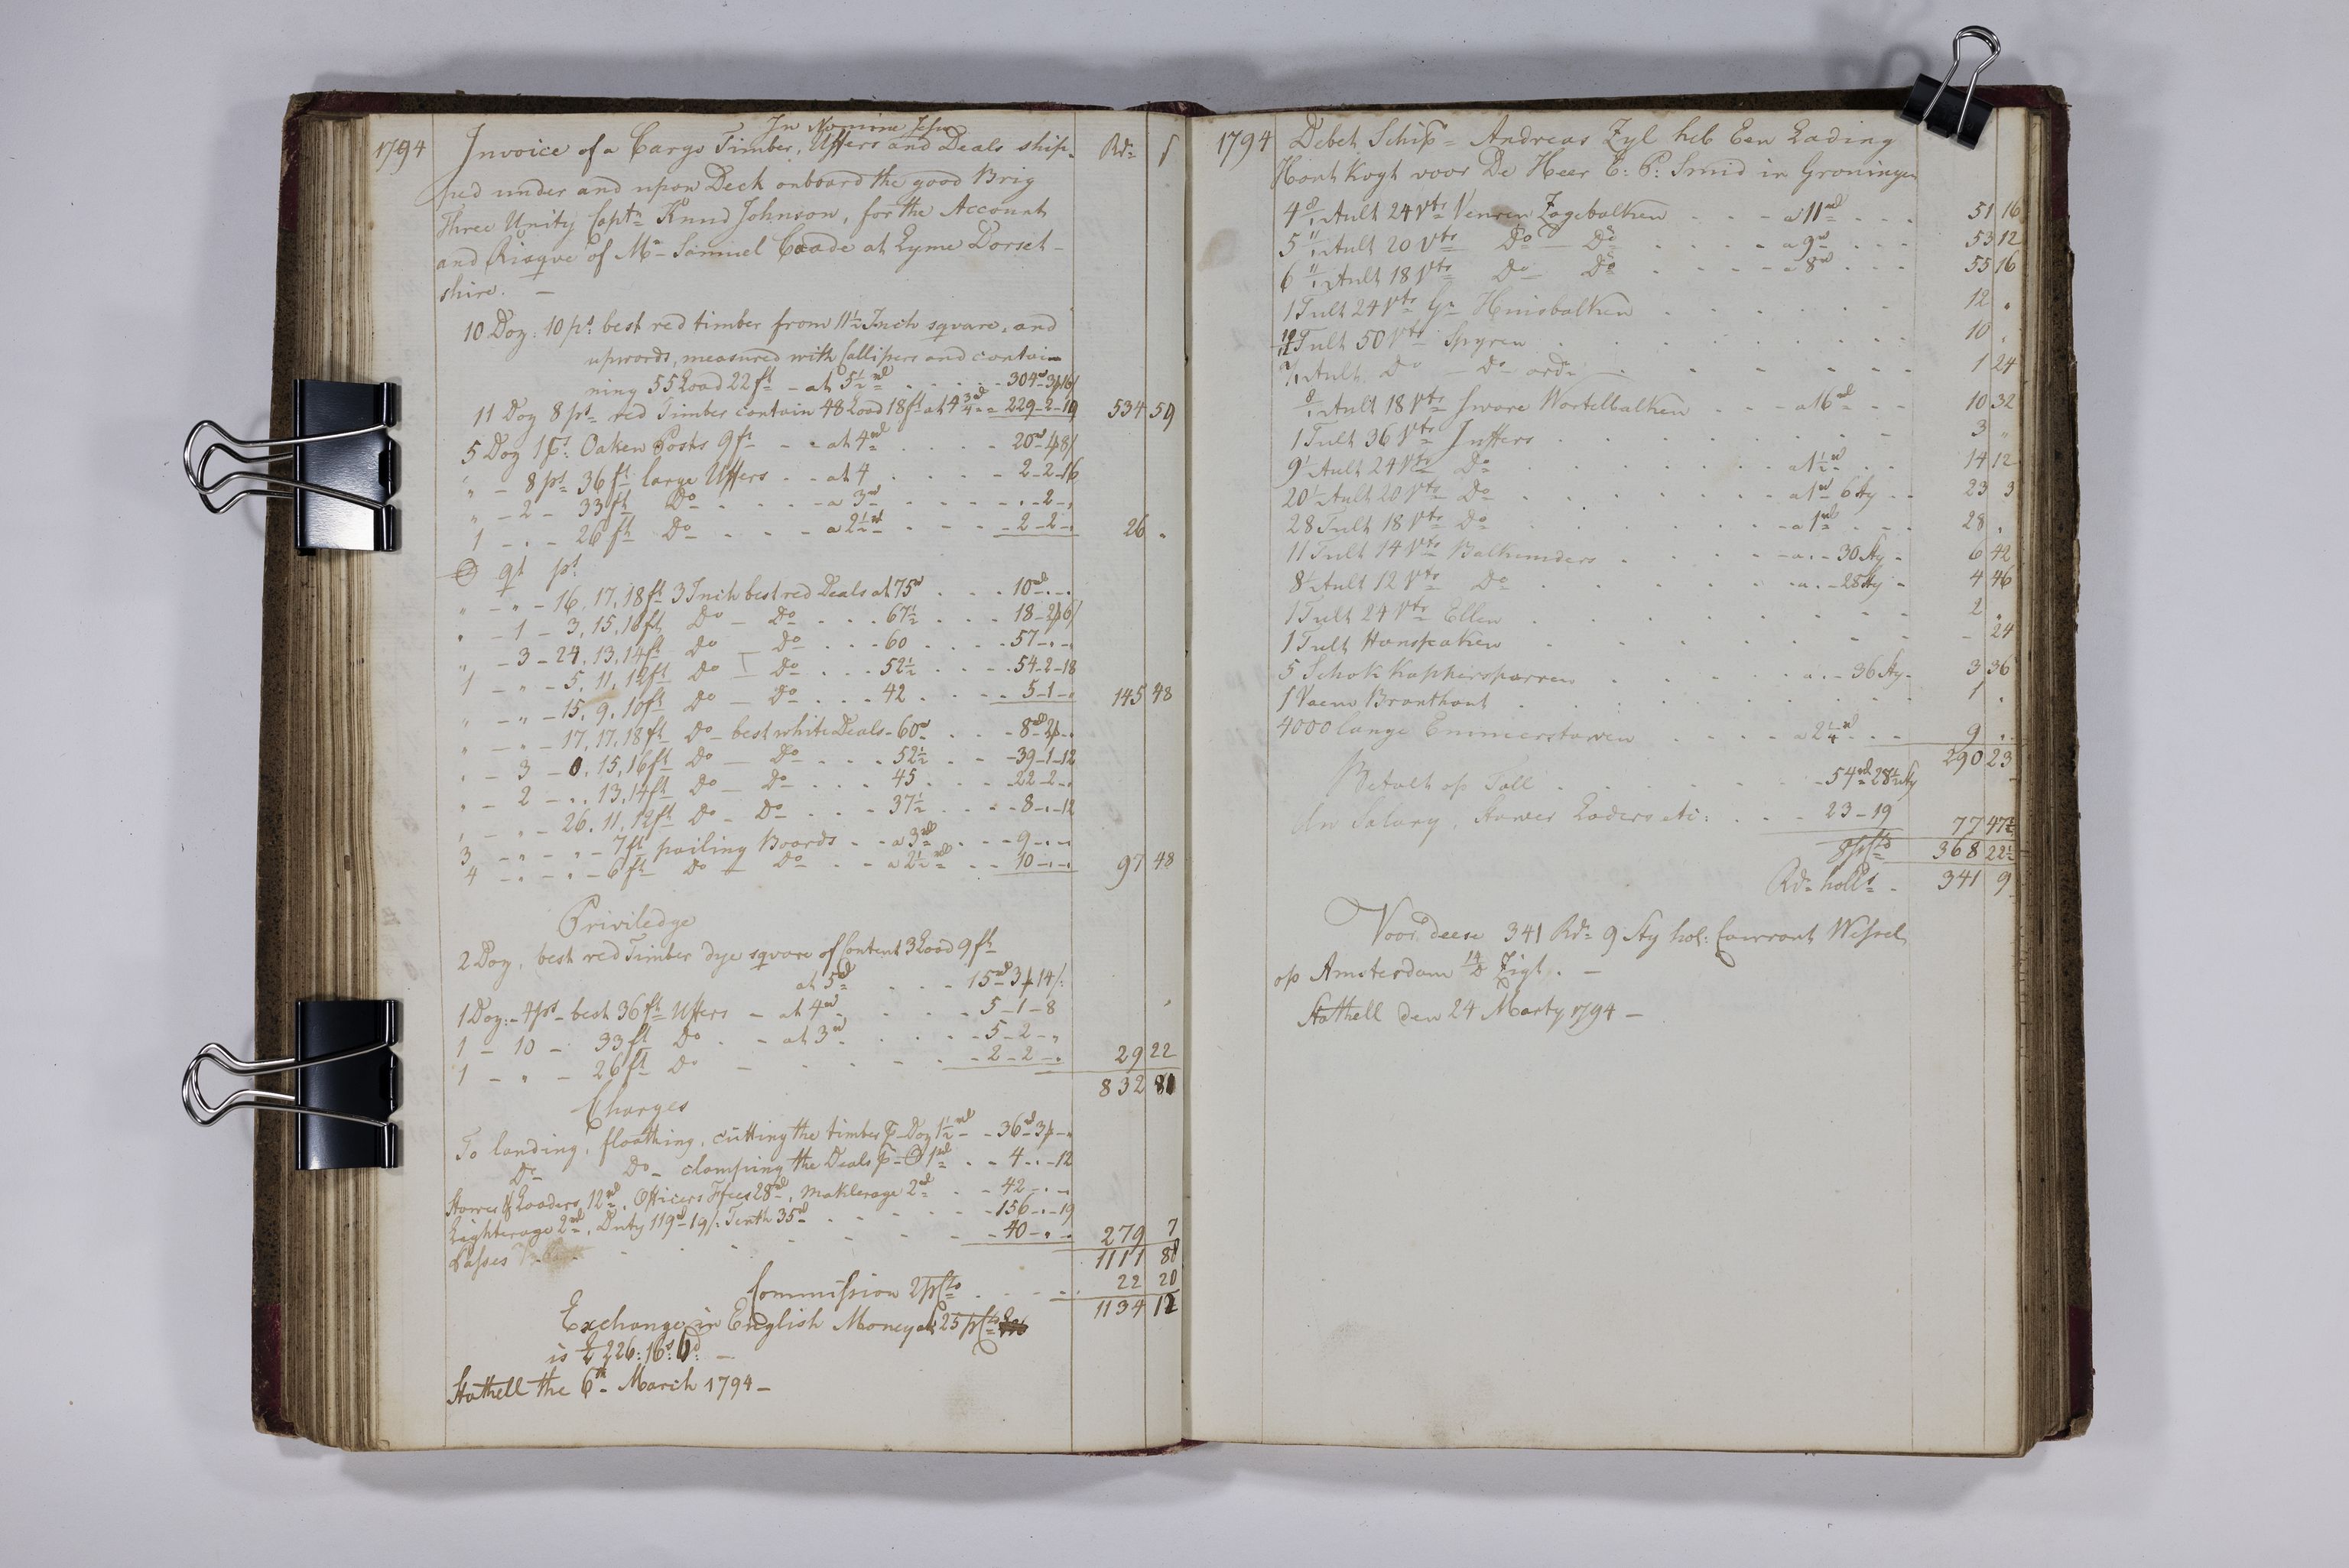 In Nomine Jesu
1794 Invoice of a Cargo Timber, Uffers and Deals ship- Rd: ſ
ped under and upon Deck onboard the good Brig
Three Unity Captn Knud Johnson, for the Account
and Risqve of Mr Samuel Coade at Lyme Dorset-
shire. —
10 Doz: 10 ps: best red timber from 11½ Inch sqvare, and
upwords, measured with Callipers and contai
ning 55 Load 22 ft - at 5½ rd . . . 304 - 3 ƥ 16/
11 Doz 8 ps red Timber contain 48 Load 18 ft at 4¾ rd - 229 - 2 - 19 534 59
5 Doz 1 ps: Oaken Posts 9 ft - - at 4 rd . . . 20 rd 4 ƥ 8/
" - 8 ps 36 ft large Uffers - - at 4 . . . 2 - 2 - 16
" - 2 - 33 ft Do . . . - a 3 rd . . . - 2 - "
1 - " - 26 ft Do - . . - a 2½ rd . . . 2 - 2 - " 26 "
qt ps
" - " - 16, 17, 18 ft 3 Inch best red Deals at 75 rd . . . 10 rd - " - "
" - 1 - 3, 15, 16 ft Do - Do . . . 67½ . . . 18 - 2 ƥ 6/
" - 3 - 24, 13, 14 ft Do - Do . . . 60 . . . 57 - " - "
1 - " - 5, 11, 12 ft Do - Do . . . 52½ . . . 54 - 2 - 18
" - " - 15, 9, 10 ft Do - Do . . . 42 . . . 5 - 1 - " 145 48
" - " - 17, 17, 18 ft Do - best white Deals - 60 rd . . . 8 rd 2 ƥ - "
" - 3 - 0, 15, 16 ft Do - Do . . . 52½ . . . 39 - 1 - 12
" - 2 - ", 13, 14 ft Do - Do . . . 45 . . . 22 - 2 - "
" - " - 26, 11, 12 ft Do - Do . . . 37½ . . . 8 - " - 12
3 - " - " - 7 ft pailing Boards - - a 3 rd . . . 9 - " - "
4 - " - " - 6 ft Do - Do . . a 2½ rd . . 10 - " - " 97 48
Priviledge
2 Doz, best red Timber dye sqvare of Content 3 Load 9 ft
at 5 rd . . . 15 rd 3 ƥ 14/:
1 Doz: - 4 ps - best 36 ft Uffers - at 4 rd . . . 5 - 1 - 8
1 - 10 - 33 ft Do . - at 3 rd . . . 5 - 2 - "
1 - " - 26 ft Do - . . . 2 - 2 - " 29 22
832 81
Charges
To landing, floathing, cutting the timber ƥ Doz 1½ rd - 36 rd 3 ƥ - "
Do Do - clamping the Deals ƥ 1 rd . . 4 - " - 12
Stower & Loaders 12 rd, Officers Ffees 28 rd, Maklerage 2 rd . . 42 - " - "
Lighterage 2 rd, Duty 119 rd 19/: Tenth 35 rd . . . 156 - " - 19
Passes . . . 40 - " - " 279 7
1111 88
Commission 2 pCto . . . 22 20
1134 12
Exchange in English Money at 25 pCto
is £ 226: 16s: 6d: —
Stathell the 6th March 1794 —
1794 Debet Schip - Andreas Zyl heb Een Lading
Hout Kogt voor De Heer E: P: Smid in Groningen
4 8/1 Ault 24 Vts Venren Zagebalken . . . a 11 rd . . . 51 16
5 11/1 Ault 20 Vts Do Do . . . a 9 rd . . . 53 12
6 11/1 Ault 18 Vts Do Do . . . a 8 rd . . . 55 16
1 Tult 24 Vts Gr Huisbalken . . . 12 "
Tult 50 Vts Spyren . . . 10 "
Ault Do - Do ord: . . . 1 24
8/1 Ault 18 Vts Sware Wortelbalken . . . a 16 rd . . 10 32
1 Tult 36 Vts Juffers . . . 3 "
9 Ault 24 Vts Do . . . a 1½ rd . . 14 12
20 Ault 20 Vts Do . . . a 1 rd 6 sty . . 23 3
28 Tult 18 Vts Do . . . a 1 rd . . . 28 "
11 Tult 14 Vts Balkunders . . . a " - 30 Sty - 6 42
8 Ault 12 Vts Do . . . a " - 28 Sty - 4 46
1 Tult 24 Vts Ellen . . . 2 "
1 Tult Hanspaken . . . - 24
5 Schok Kappersparren . . . a " - 36 Sty - 3 36
1 Vaem Branthout . . . 1 "
4000 lange Emmerstaven . . . a 2¼ rd . . . 9 "
290 23
Betalt op Toll . . . 54 rd 28½ Sty
An Salary, Stower Laders etc: . . . 23 - 19 77 47½
8 pCto 368 22½
Rdr holl: - 341 9
Voor deese 341 Rdr 9 Sty hol: Courrant Wissel
op Amsterdam 14/D Zigt. —
Stathell den 24 Marty 1794 —